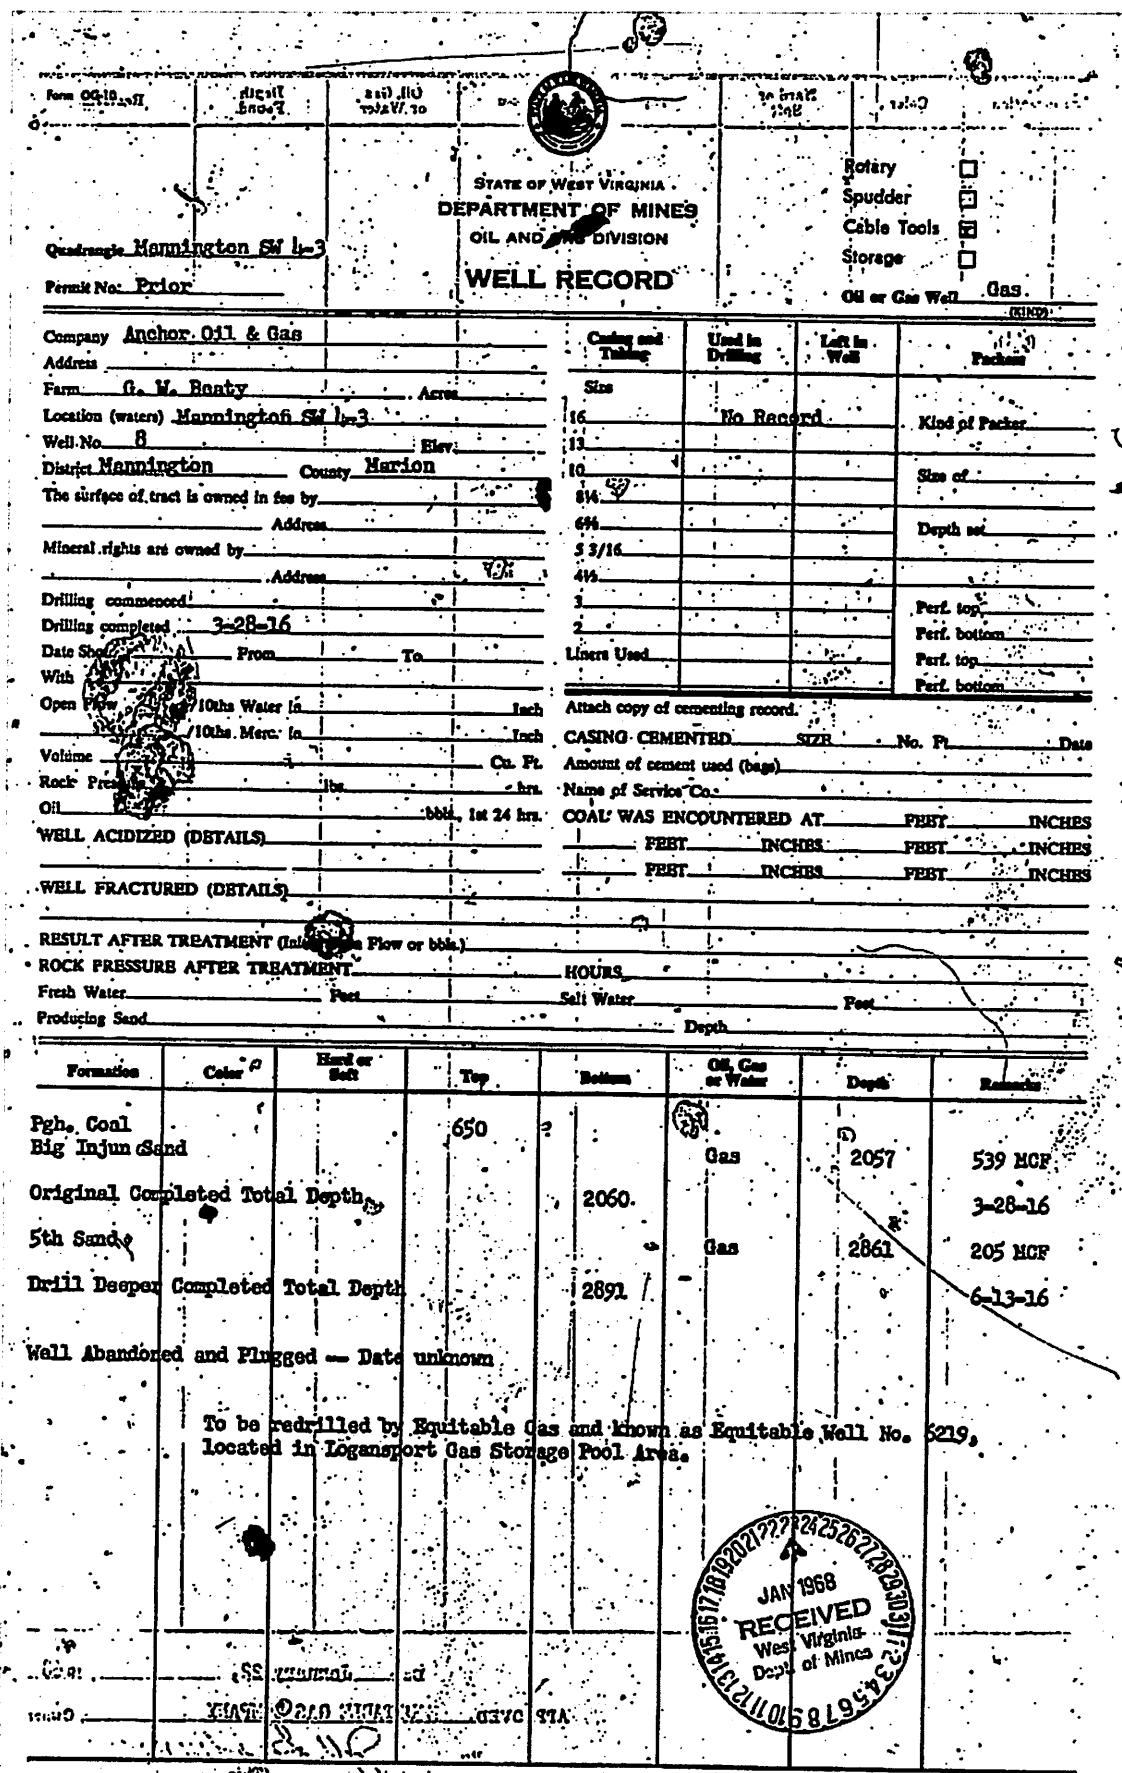 Form OG-10
STATE OF WEST VIRGINIA
DEPARTMENT OF MINES
OIL AND GAS DIVISION
WELL RECORD
Rotary
Spudder
Cable Tools
Storage
Quadrangle Mannington SW 4-3
Permit No. Prior
Oil or Gas Well Gas
(KIND)
Company Anchor Oil & Gas
Address
Farm G. W. Beaty Acres
Location (waters) Mannington SW 4-3
Well No. 8 Elev.
District Mannington County Marion
The surface of tract is owned in fee by
Address
Mineral rights are owned by
Address
Drilling commenced
Drilling completed 3-28-16
Date Shot From To
With
Open Flow /10ths Water in Inch
/10ths Merc. in Inch
Volume Cu. Ft.
Rock Pressure lbs. hrs.
Oil bbls., 1st 24 hrs.
WELL ACIDIZED (DETAILS)
WELL FRACTURED (DETAILS)
Casing and Tubing Used in Drilling Left in Well Packers
Size
16 No Record Kind of Packer
13
10 Size of
8¼
6⅝ Depth set
5 3/16
4½
3 Perf. top
2 Perf. bottom
Liners Used Perf. top
Perf. bottom
Attach copy of cementing record.
CASING CEMENTED SIZE No. Ft. Date
Amount of cement used (bags)
Name of Service Co.
COAL WAS ENCOUNTERED AT FEET INCHES
FEET INCHES FEET INCHES
FEET INCHES FEET INCHES
RESULT AFTER TREATMENT (Initial Open Flow or bbls.)
ROCK PRESSURE AFTER TREATMENT HOURS
Fresh Water Feet Salt Water Feet
Producing Sand Depth
Formation Color Hard or Soft Top Bottom Oil, Gas or Water Depth Remarks
Pgh. Coal 650
Big Injun Sand Gas 2057 539 MCF
Original Completed Total Depth 2060 3-28-16
5th Sand Gas 2861 205 MCF
Drill Deeper Completed Total Depth 2891 6-13-16
Well Abandoned and Plugged -- Date unknown
To be redrilled by Equitable Gas and known as Equitable Well No. 6219,
located in Logansport Gas Storage Pool Area.
JAN 1968
RECEIVED
West Virginia
Dept. of Mines